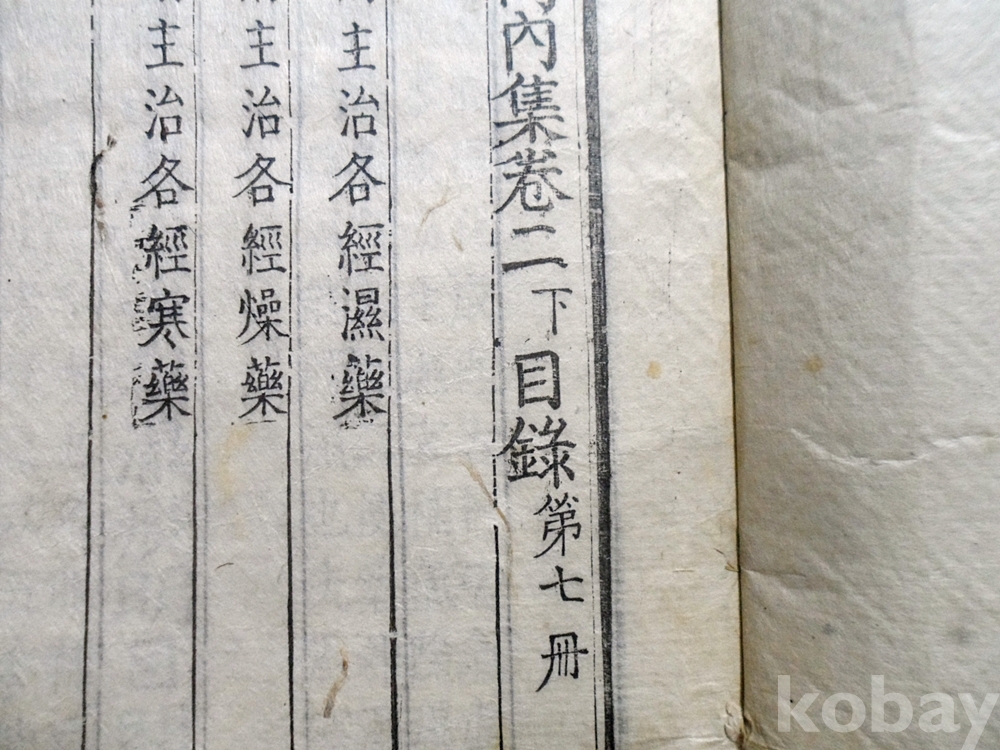 內集卷二下目錄第七冊
主治各經濕藥
主治各經燥藥
主治各經寒藥
kobay